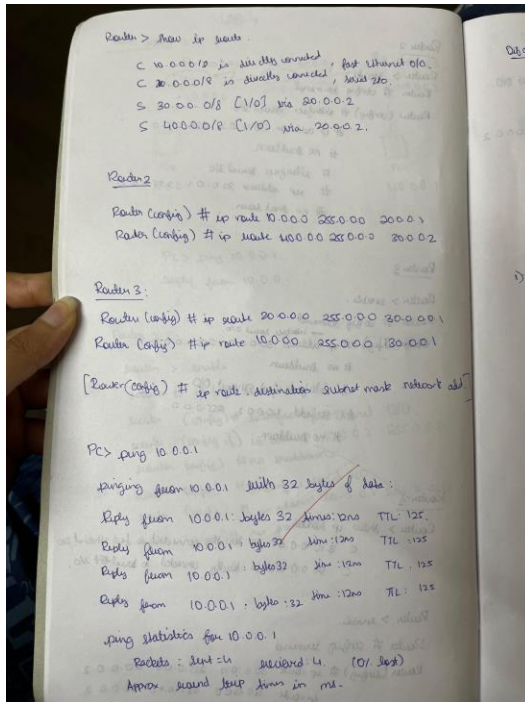 Router > show ip route.
C 10.0.0.0/8 is directly connected, fast ethernet 0/0.
C 20.0.0.0/8 is directly connected, serial 2/0.
S 30.0.0.0/8 [1/0] via 20.0.0.2
S 40.0.0.0/8 [1/0] via 20.0.0.2.
Router 2
Router (config) # ip route 10.0.0.0 255.0.0.0 20.0.0.1
Router (config) # ip route 40.0.0.0 255.0.0.0 30.0.0.2
Router 3:
Router (config) # ip route 20.0.0.0 255.0.0.0 30.0.0.1
Router (config) # ip route 10.0.0.0 255.0.0.0 30.0.0.1
[Router(config) # ip route destination subnet mask network add]
PC> ping 10.0.0.1
Pinging from 10.0.0.1 with 32 bytes of data:
Reply from 10.0.0.1: bytes 32 times: 12ns TTL: 125.
Reply from 10.0.0.1: bytes 32 time: 12ns TTL: 125
Reply from 10.0.0.1: bytes 32 time: 12ns TTL: 125
Reply from 10.0.0.1: bytes: 32 time: 12ns TTL: 125
ping statistics for 10.0.0.1
Packets: sent = 4 recieved 4. (0% lost)
Approx round trip times in ms.
1)